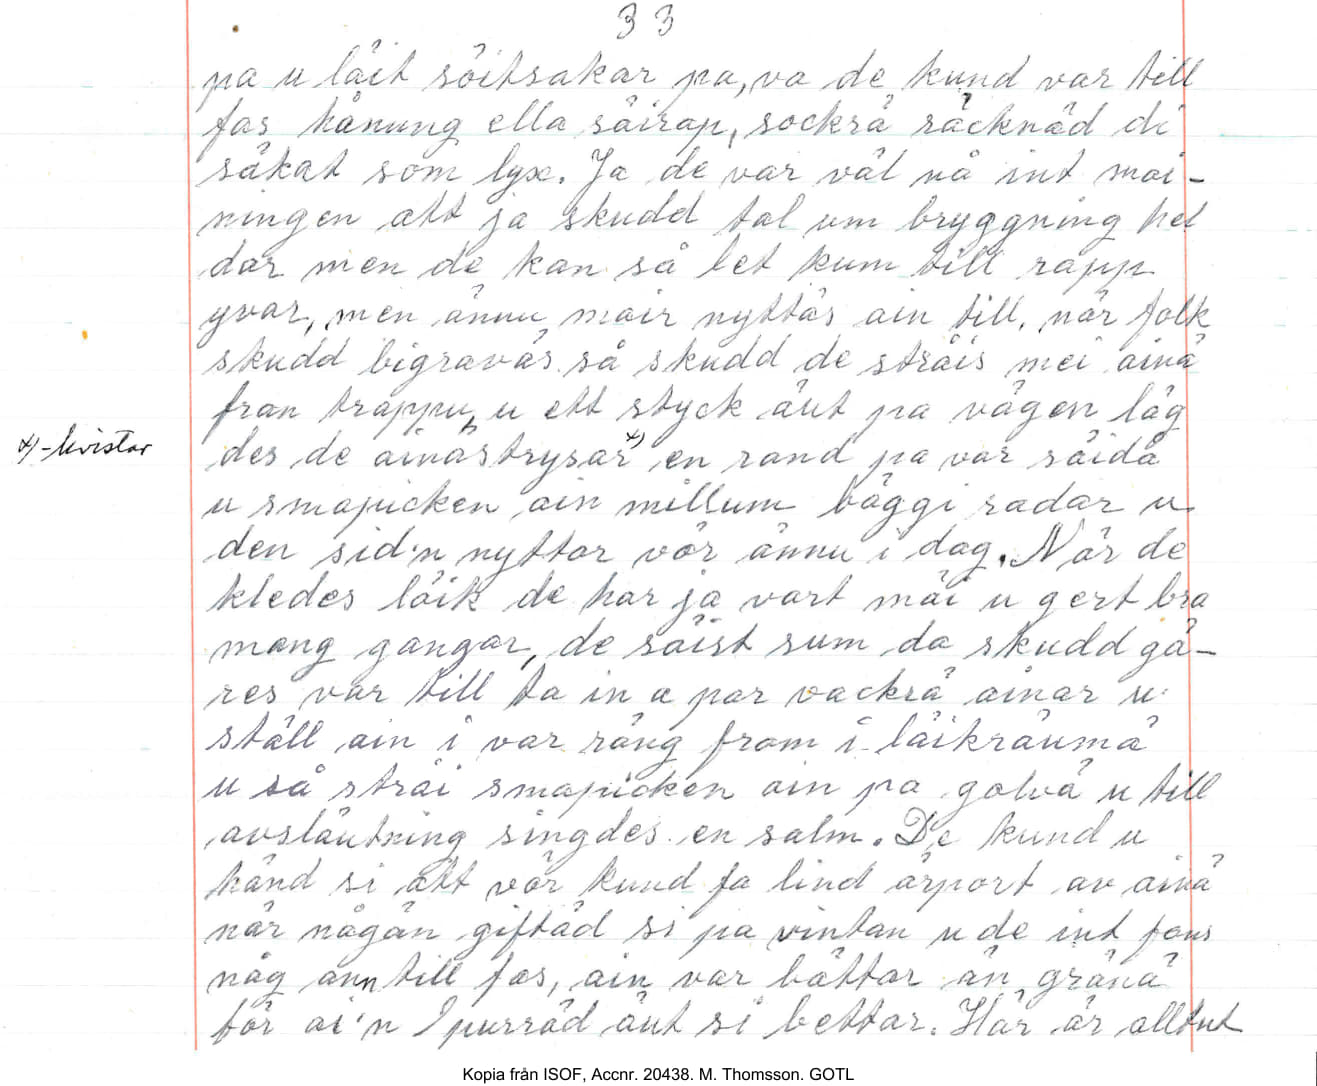 33
pa u läit söitsakar pa, va de kund var till
fas hånung ella säirap, sockrä räcknäd di
säkat som lyx. Ja de var väl nå int mai-
ningen att ja skudd tal um bryggning hel
dar men de kan så let kum till rapp
yvar, men ännu mair nyttäs ain till, när folk
skudd bigraväs så skudd de sträis mei ainä
fran trappu, u ett styck äut pa vägen läg
x) -kvistar
des de ainästrysar x) en rand pa var säidå
u smapicken ain millum bäggi radar u
den sid'n nyttar vör ännu i dag. När de
kledes läik de har ja vart mäi u gert bra
mang gangar, de säist sum da skudd gä-
res var till ta in a par vackrä ainar u
ställ ain i var räng fram i läikräumä
u så sträi smapicken ain pa golvä u till
avsläutning singdes en salm. De kund u
händ si att vör kund fa lind ärport av ainä
när någän giftäd si pa vintan u de int fans
någ ann till fas, ain var bättar än gränä
för ai'n spurräd äut si bettar. Här är alltut
Kopia från ISOF, Accnr. 20438. M. Thomsson. GOTL